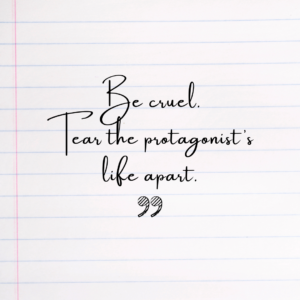 Be cruel.
Tear the protagonist's
life apart.
”